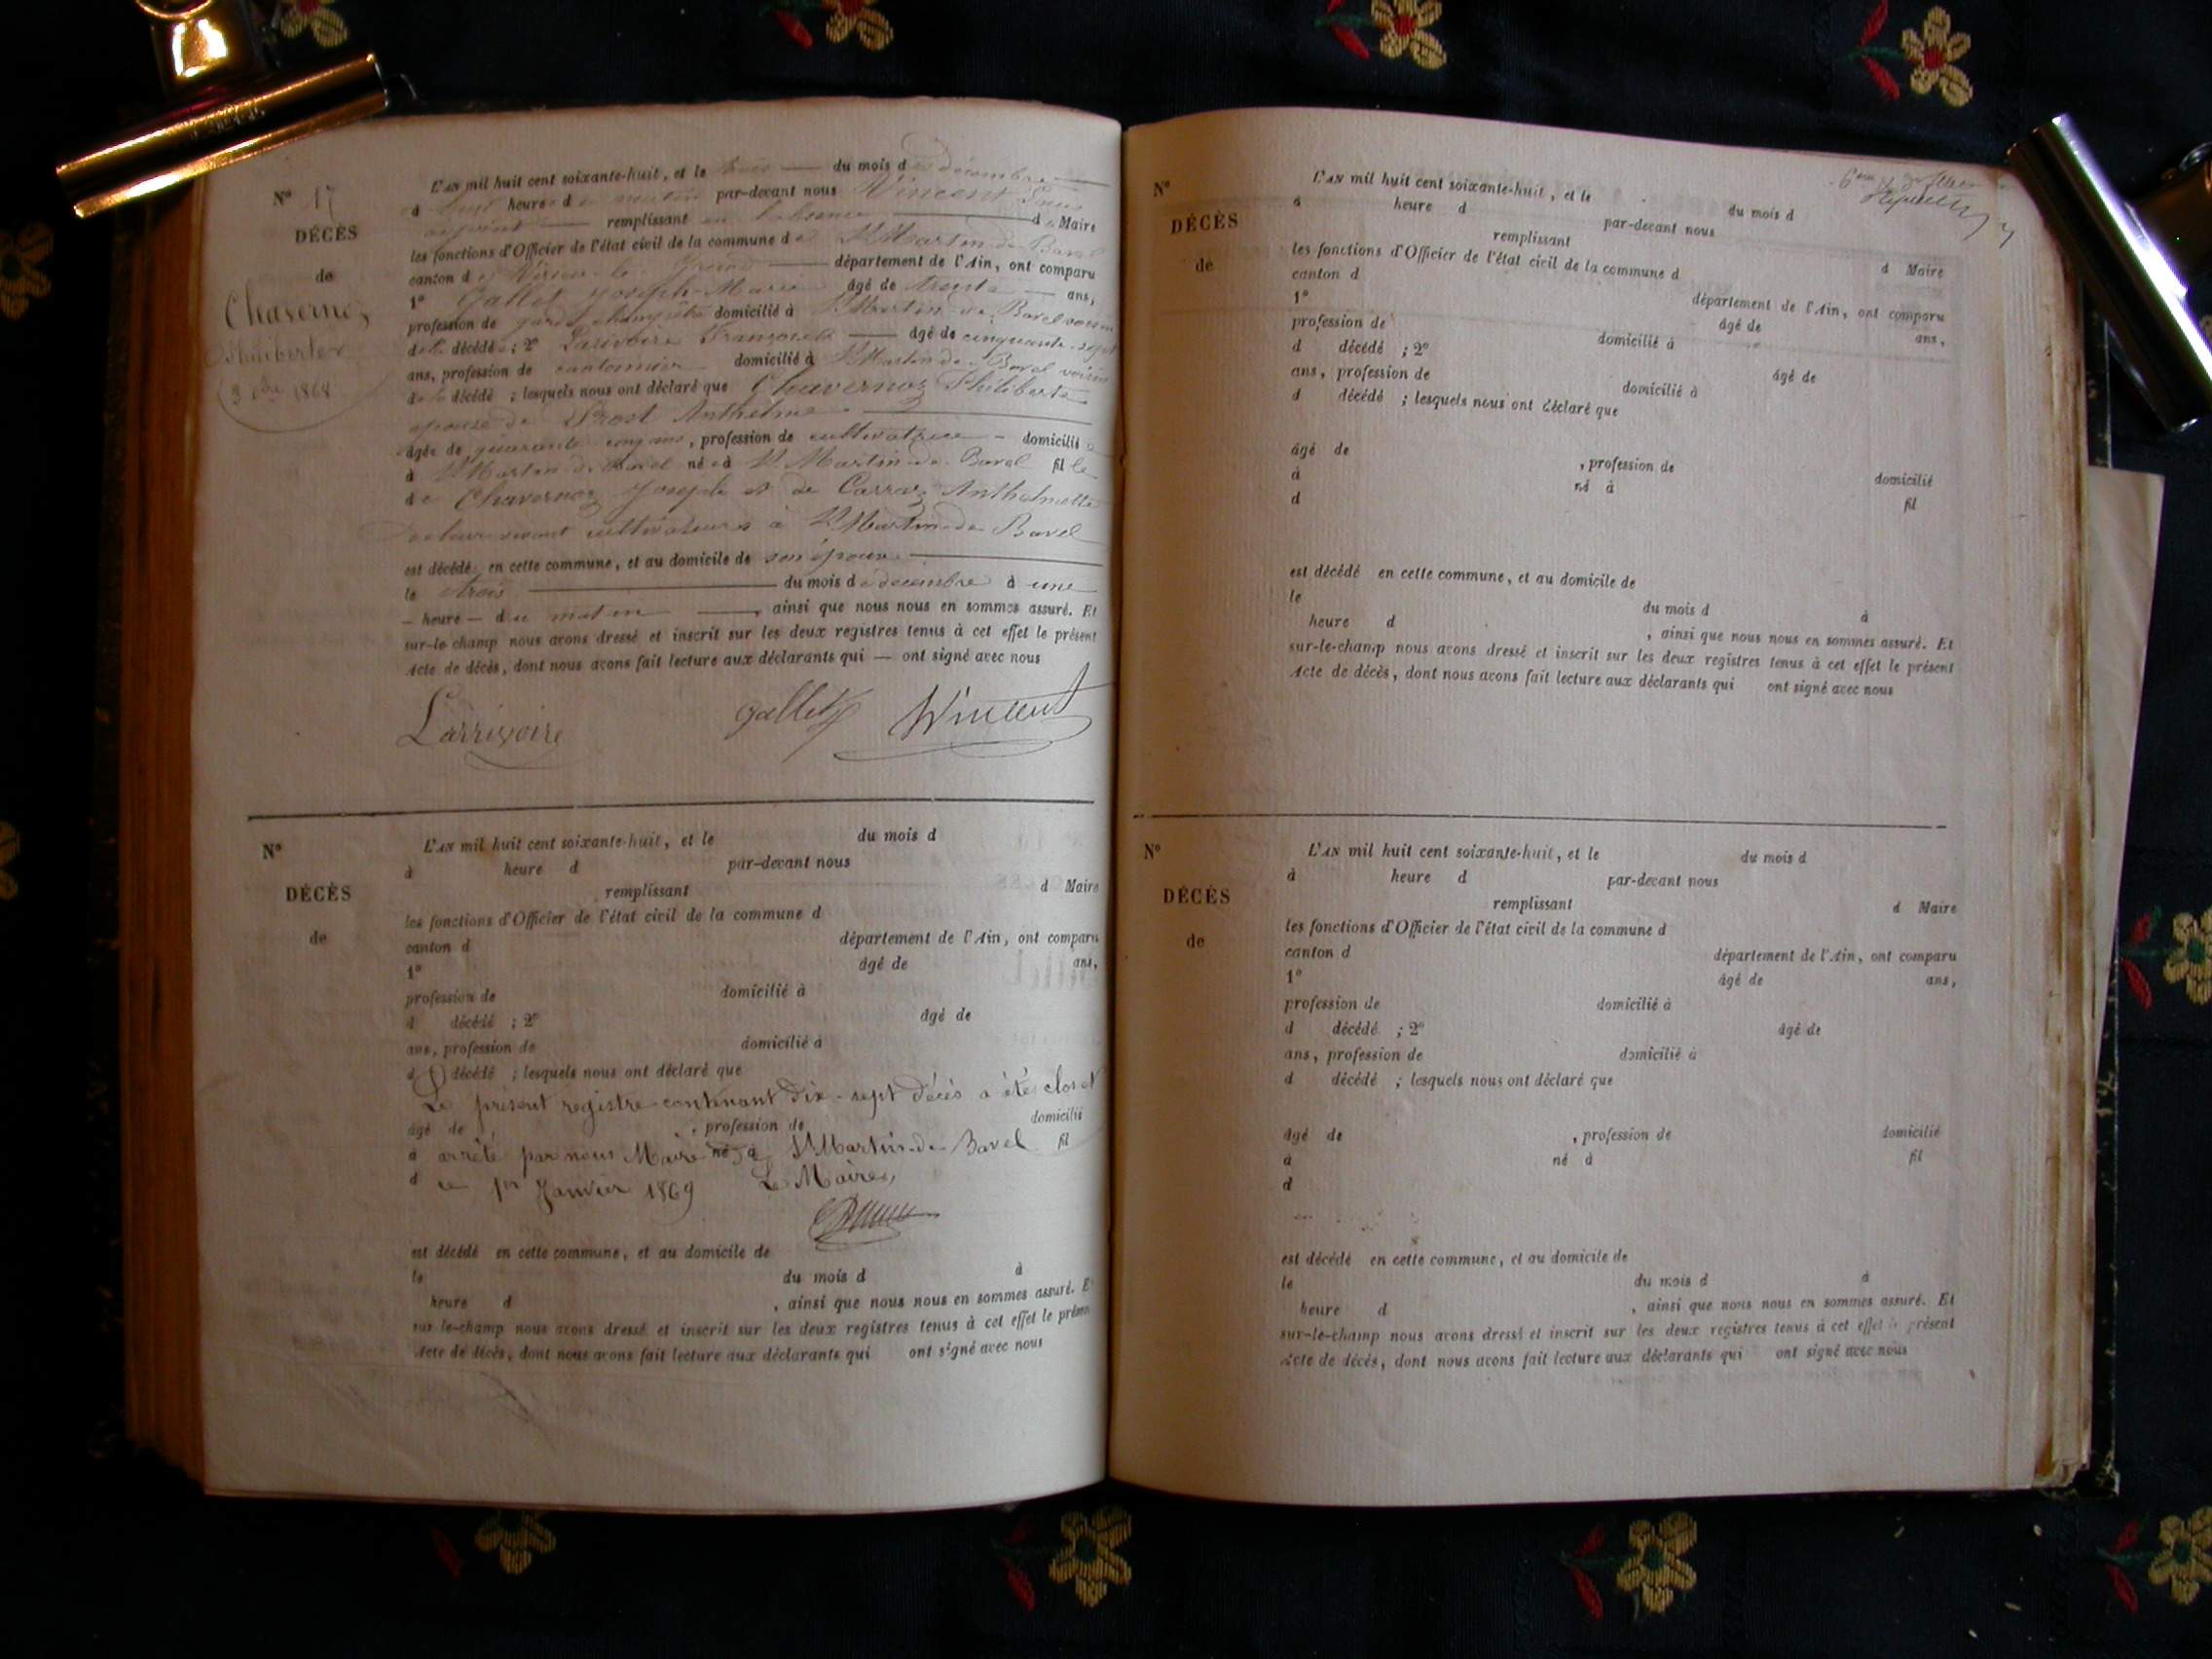 N° 17
DÉCÈS
de
Chavernoz
Philiberte
L'AN mil huit cent soixante-huit, et le du mois de décembre
à heures du matin par-devant nous Vincent
adjoint remplissant en l'absence du Maire
les fonctions d'Officier de l'état civil de la commune de St Martin de Bavel
canton de Virieu-le-Grand département de l'Ain, ont comparu
1° Gallet Joseph-Marie âgé de trente ans,
profession de garde champêtre domicilié à St Martin-de-Bavel voisin
de la décédée ; 2° Larivoire François âgé de cinquante-sept
ans, profession de cantonnier domicilié à St Martin-de-Bavel voisin
de la décédée ; lesquels nous ont déclaré que Chavernoz Philiberte
épouse de Prost Anthelme
âgée de quarante cinq ans, profession de cultivatrice domiciliée
à St Martin-de-Bavel née à St Martin-de-Bavel fille
de Chavernoz Joseph et de Carraz Anthelmette
de leur vivant cultivateurs à St Martin-de-Bavel
est décédée en cette commune, et au domicile de son époux
le trois du mois de décembre à une
heure du matin, ainsi que nous nous en sommes assuré. Et
sur-le-champ nous avons dressé et inscrit sur les deux registres tenus à cet effet le présent
Acte de décès, dont nous avons fait lecture aux déclarants qui ont signé avec nous
Larrivoire gallet Vincent
N°
DÉCÈS
de
L'AN mil huit cent soixante-huit, et le du mois d
à heure d par-devant nous
remplissant d Maire
les fonctions d'Officier de l'état civil de la commune d
canton d département de l'Ain, ont comparu
1° âgé de ans,
profession de domicilié à
d décédé ; 2° âgé de
ans, profession de domicilié à
d décédé ; lesquels nous ont déclaré que
Le présent registre contenant dix-sept décès a été clos et
âgé de , profession de domicilié
à arrêté par nous Maire né à St Martin-de-Bavel fil
d ce 1er Janvier 1869 Le Maire,
est décédé en cette commune, et au domicile de
le du mois d à
heure d , ainsi que nous nous en sommes assuré. Et
sur-le-champ nous avons dressé et inscrit sur les deux registres tenus à cet effet le présent
Acte de décès, dont nous avons fait lecture aux déclarants qui ont signé avec nous
N°
DÉCÈS
de
L'AN mil huit cent soixante-huit, et le du mois d
à heure d par-devant nous
remplissant d Maire
les fonctions d'Officier de l'état civil de la commune d
canton d département de l'Ain, ont comparu
1° âgé de ans,
profession de domicilié à
d décédé ; 2° âgé de
ans, profession de domicilié à
d décédé ; lesquels nous ont déclaré que
âgé de , profession de domicilié
à né à fil
d
est décédé en cette commune, et au domicile de
le du mois d à
heure d , ainsi que nous nous en sommes assuré. Et
sur-le-champ nous avons dressé et inscrit sur les deux registres tenus à cet effet le présent
Acte de décès, dont nous avons fait lecture aux déclarants qui ont signé avec nous
N°
DÉCÈS
de
L'AN mil huit cent soixante-huit, et le du mois d
à heure d par-devant nous
remplissant d Maire
les fonctions d'Officier de l'état civil de la commune d
canton d département de l'Ain, ont comparu
1° âgé de ans,
profession de domicilié à
d décédé ; 2° âgé de
ans, profession de domicilié à
d décédé ; lesquels nous ont déclaré que
âgé de , profession de domicilié
à né à fil
d
est décédé en cette commune, et au domicile de
le du mois d à
heure d , ainsi que nous nous en sommes assuré. Et
sur-le-champ nous avons dressé et inscrit sur les deux registres tenus à cet effet le présent
Acte de décès, dont nous avons fait lecture aux déclarants qui ont signé avec nous